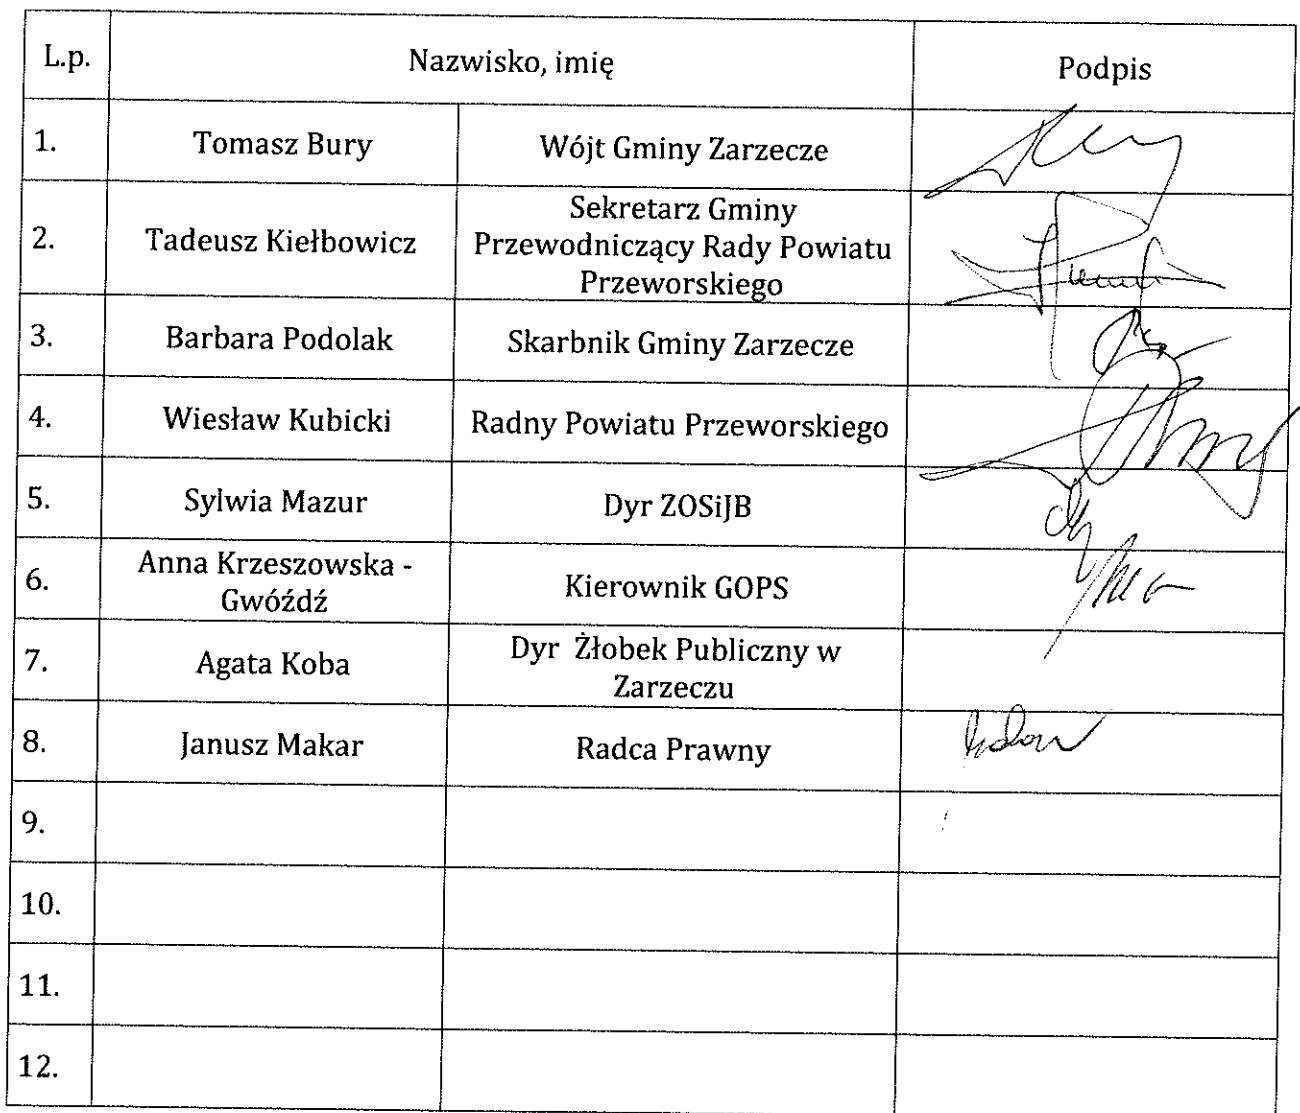 L.p. Nazwisko, imię Podpis
1. Tomasz Bury Wójt Gminy Zarzecze
2. Tadeusz Kiełbowicz Sekretarz Gminy
Przewodniczący Rady Powiatu
Przeworskiego
3. Barbara Podolak Skarbnik Gminy Zarzecze
4. Wiesław Kubicki Radny Powiatu Przeworskiego
5. Sylwia Mazur Dyr ZOSiJB
6. Anna Krzeszowska -
Gwóźdź Kierownik GOPS
7. Agata Koba Dyr Żłobek Publiczny w
Zarzeczu
8. Janusz Makar Radca Prawny
9.
10.
11.
12.